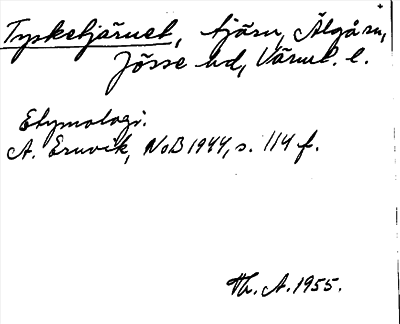 Tysketjärnet, tjärn, Älgå sn,
Jösse hd, Värml. l.
Etymologi.
A. Ernvik, NoB 1944, s. 114 f.
Th. A. 1955.